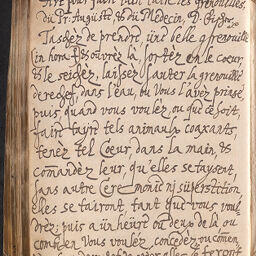 Art pour faire taire les grenouilles,
du Sr. Auguste, & du Medecin, D.
Taschez de prendre, une belle grenouille
in hora ouvrez la, sortez en le cœur,
& le seichez, laissez sauter la grenouille
derechef, dans l'eau, ou vous l'avez prinse
puis quand vous voulez, ou que ce soit,
faire tayre tels animaux coaxants,
tenez tel Cœur dans la main, &
commãdez leur, qu'elles se taysent,
sans autre Ceremonie ni superstition
elles se tairont, tant que vous voul-
drez; puis a ün heure ou deux de là ou
comme en vous voulez, concedez ou comen